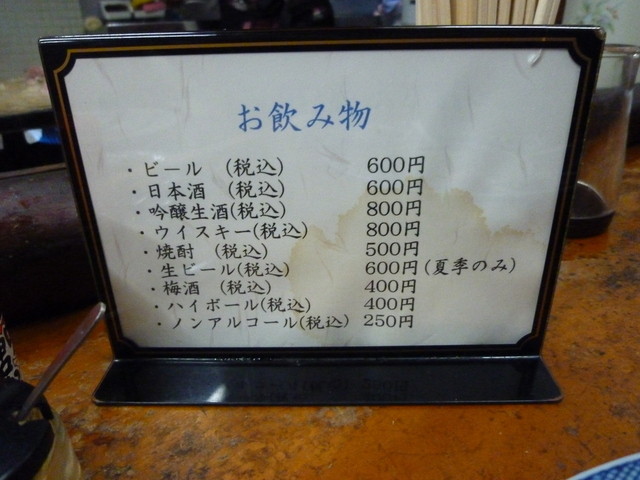 お飲み物
・ビール （税込） 600円
・日本酒 （税込） 600円
・吟醸生酒(税込) 800円
・ウイスキー(税込) 800円
・焼酎 （税込） 500円
・生ビール(税込) 600円(夏季のみ)
・梅酒 （税込） 400円
・ハイボール(税込) 400円
・ノンアルコール(税込) 250円